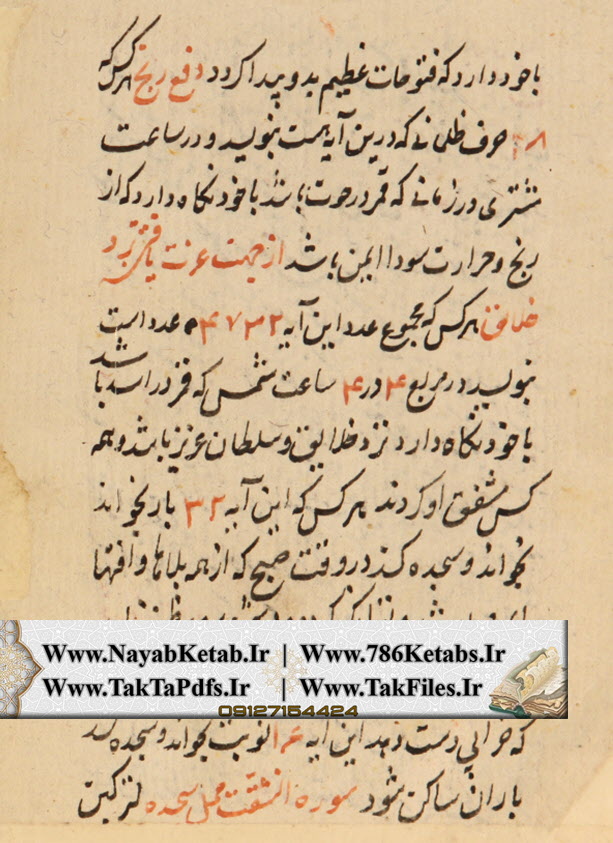 با خود دارد که فتوحات عظیم بدو پیدا کردد دفع رنج هرکس که
۲۸ حرف ظلمانی که درین آیه هست بنویسد و در ساعت
مشتری در زمانی که قمر در حوت باشد با خود نکاه دارد که از
رنج و حرارت سودا ایمن باشد از جهت عزت یافتن نزد
خلایق هرکس که مجموع عدد این آیه ۴۷۳۲ عدد است
بنویسد در مربع ۴ در ۴ ساعت شمس که قمر در اسد باشد
با خود نکاه دارد نزد خلایق و سلطان عزیز باشد و همه
کس مشفق او کردند هرکس که این آیه ۳۲ بار بخواند
بخواند و سجده کند در وقت صبح که از همه بلاها و افتها
Www.NayabKetab.Ir | Www.786Ketabs.Ir
Www.TakTaPdfs.Ir | Www.TakFiles.Ir
09127154424
که خرابی دست دهد این آیه نوبت بخواند و سجده کند
باران ساکن شود سوره انشقت محل سجده لترکبن